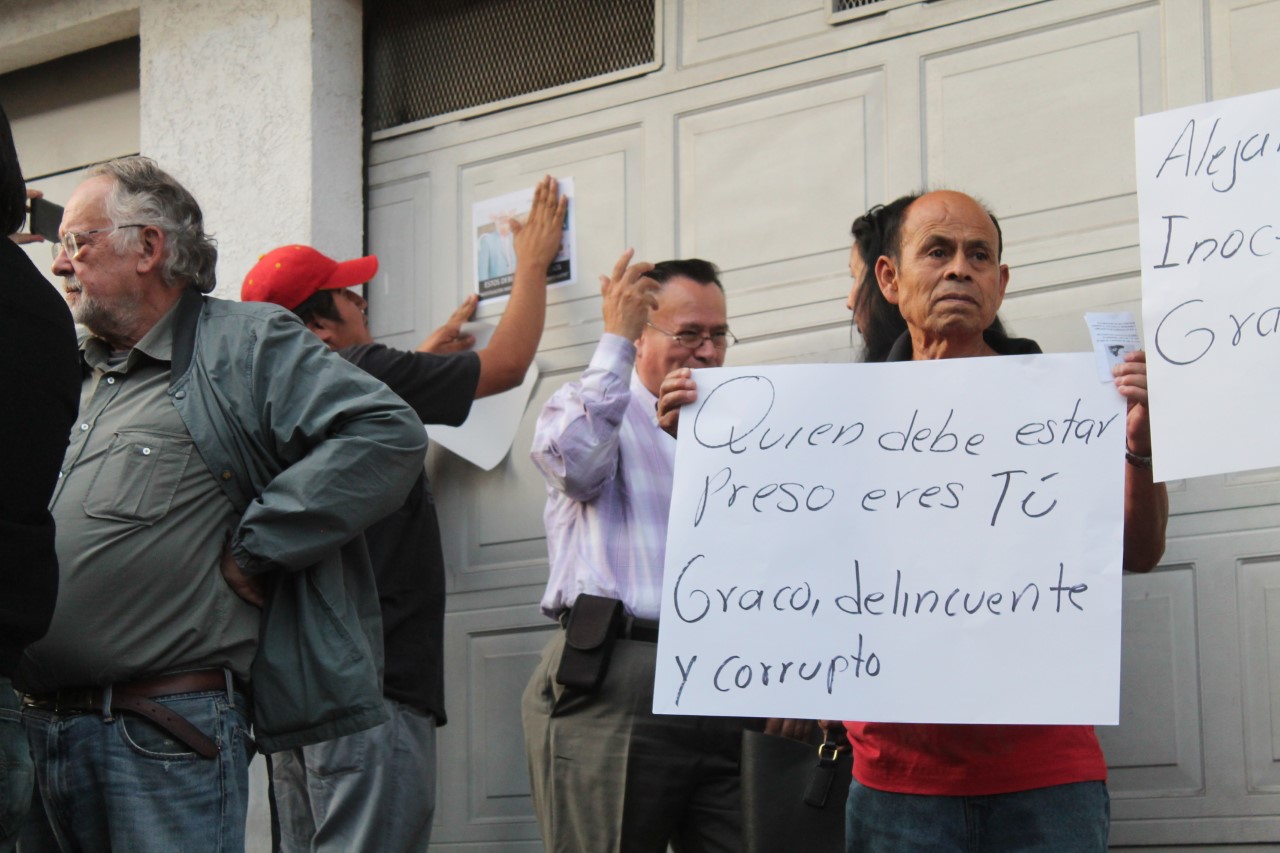 Quien debe estar
Preso eres Tú
Graco, delincuente
y corrupto
Aleja
Inoc
Gra